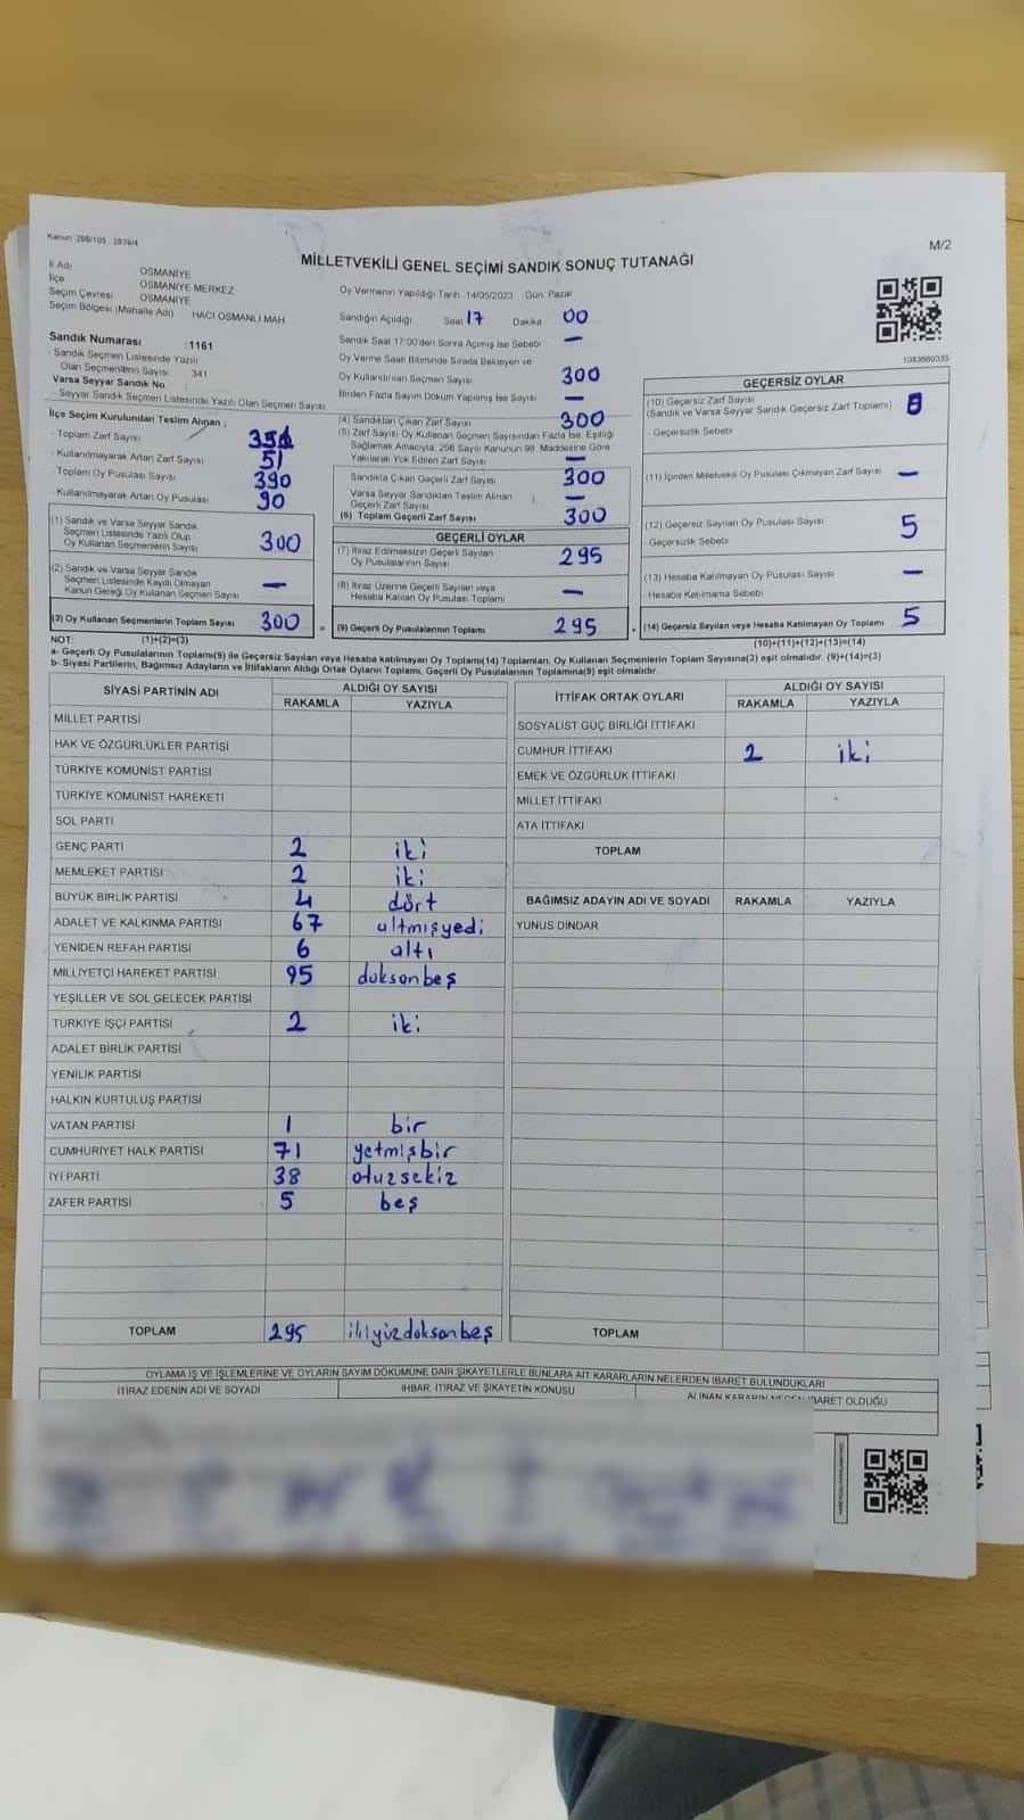 Kanun: 298/105 2839/4
M/2
MİLLETVEKİLİ GENEL SEÇİMİ SANDIK SONUÇ TUTANAĞI
İl Adı OSMANİYE
İlçe OSMANİYE MERKEZ
Seçim Çevresi OSMANİYE
Seçim Bölgesi (Mahalle Adı) HACI OSMANLI MAH
Sandık Numarası :1161
Sandık Seçmen Listesinde Yazılı
Olan Seçmenlerin Sayısı 341
Varsa Seyyar Sandık No :
Seyyar Sandık Seçmen Listesinde Yazılı Olan Seçmen Sayısı
İlçe Seçim Kurulundan Teslim Alınan ;
- Toplam Zarf Sayısı 351
- Kullanılmayarak Artan Zarf Sayısı 51
- Toplam Oy Pusulası Sayısı 390
- Kullanılmayarak Artan Oy Pusulası 90
(1) Sandık ve Varsa Seyyar Sandık
Seçmen Listesinde Yazılı Olup
Oy Kullanan Seçmenlerin Sayısı 300
(2) Sandık ve Varsa Seyyar Sandık
Seçmen Listesinde Kayıtlı Olmayan
Kanun Gereği Oy Kullanan Seçmen Sayısı —
(3) Oy Kullanan Seçmenlerin Toplam Sayısı 300
Oy Vermenin Yapıldığı Tarih 14/05/2023 Gün: Pazar
Sandığın Açıldığı Saat 17 Dakika 00
Sandık Saat 17:00'den Sonra Açılmış İse Sebebi —
Oy Verme Saati Bitiminde Sırada Bekleyen ve
Oy Kullandırılan Seçmen Sayısı 300
Birden Fazla Sayım Döküm Yapılmış İse Sayısı —
(4) Sandıktan Çıkan Zarf Sayısı 300
(5) Zarf Sayısı Oy Kullanan Seçmen Sayısından Fazla İse, Eşitliği
Sağlamak Amacıyla, 298 Sayılı Kanunun 98. Maddesine Göre
Yakılarak Yok Edilen Zarf Sayısı —
Sandıkta Çıkan Geçerli Zarf Sayısı 300
Varsa Seyyar Sandıktan Teslim Alınan
Geçerli Zarf Sayısı —
(6) Toplam Geçerli Zarf Sayısı 300
GEÇERLİ OYLAR
(7) İtiraz Edilmeksizin Geçerli Sayılan
Oy Pusulalarının Sayısı 295
(8) İtiraz Üzerine Geçerli Sayılan veya
Hesaba Katılan Oy Pusulası Toplamı —
= (9) Geçerli Oy Pusulalarının Toplamı 295
1083660335
GEÇERSİZ OYLAR
(10) Geçersiz Zarf Sayısı
(Sandık ve Varsa Seyyar Sandık Geçersiz Zarf Toplamı)
- Geçersizlik Sebebi
(11) İçinden Milletvekili Oy Pusulası Çıkmayan Zarf Sayısı —
(12) Geçersiz Sayılan Oy Pusulası Sayısı 5
- Geçersizlik Sebebi
(13) Hesaba Katılmayan Oy Pusulası Sayısı —
- Hesaba Katılmama Sebebi
(14) Geçersiz Sayılan veya Hesaba Katılmayan Oy Toplamı 5
NOT: (1)+(2)=(3)
(10)+(11)+(12)+(13)=(14)
a- Geçerli Oy Pusulalarının Toplamı(9) ile Geçersiz Sayılan veya Hesaba katılmayan Oy Toplamı(14) Toplamları, Oy Kullanan Seçmenlerin Toplam Sayısına(3) eşit olmalıdır. (9)+(14)=(3)
b- Siyasi Partilerin, Bağımsız Adayların ve İttifakların Aldığı Ortak Oyların Toplamı, Geçerli Oy Pusulalarının Toplamına(9) eşit olmalıdır.
SİYASİ PARTİNİN ADI ALDIĞI OY SAYISI
RAKAMLA YAZIYLA
MİLLET PARTİSİ
HAK VE ÖZGÜRLÜKLER PARTİSİ
TÜRKİYE KOMÜNİST PARTİSİ
TÜRKİYE KOMÜNİST HAREKETİ
SOL PARTİ
GENÇ PARTİ 2 iki
MEMLEKET PARTİSİ 2 iki
BÜYÜK BİRLİK PARTİSİ 4 dört
ADALET VE KALKINMA PARTİSİ 67 altmışyedi
YENİDEN REFAH PARTİSİ 6 altı
MİLLİYETÇİ HAREKET PARTİSİ 95 doksanbeş
YEŞİLLER VE SOL GELECEK PARTİSİ
TÜRKİYE İŞÇİ PARTİSİ 2 iki
ADALET BİRLİK PARTİSİ
YENİLİK PARTİSİ
HALKIN KURTULUŞ PARTİSİ
VATAN PARTİSİ 1 bir
CUMHURİYET HALK PARTİSİ 71 yetmişbir
İYİ PARTİ 38 otuzsekiz
ZAFER PARTİSİ 5 beş
TOPLAM 295 ikiyüzdoksanbeş
İTTİFAK ORTAK OYLARI ALDIĞI OY SAYISI
RAKAMLA YAZIYLA
SOSYALİST GÜÇ BİRLİĞİ İTTİFAKI
CUMHUR İTTİFAKI 2 iki
EMEK VE ÖZGÜRLÜK İTTİFAKI
MİLLET İTTİFAKI
ATA İTTİFAKI
TOPLAM
BAĞIMSIZ ADAYIN ADI VE SOYADI RAKAMLA YAZIYLA
YUNUS DİNDAR
TOPLAM
OYLAMA İŞ VE İŞLEMLERİNE VE OYLARIN SAYIM DÖKÜMÜNE DAİR ŞİKAYETLERLE BUNLARA AİT KARARLARIN NELERDEN İBARET BULUNDUKLARI
İTİRAZ EDENİN ADI VE SOYADI İHBAR, İTİRAZ VE ŞİKAYETİN KONUSU ALINAN KARARIN NEDEN İBARET OLDUĞU